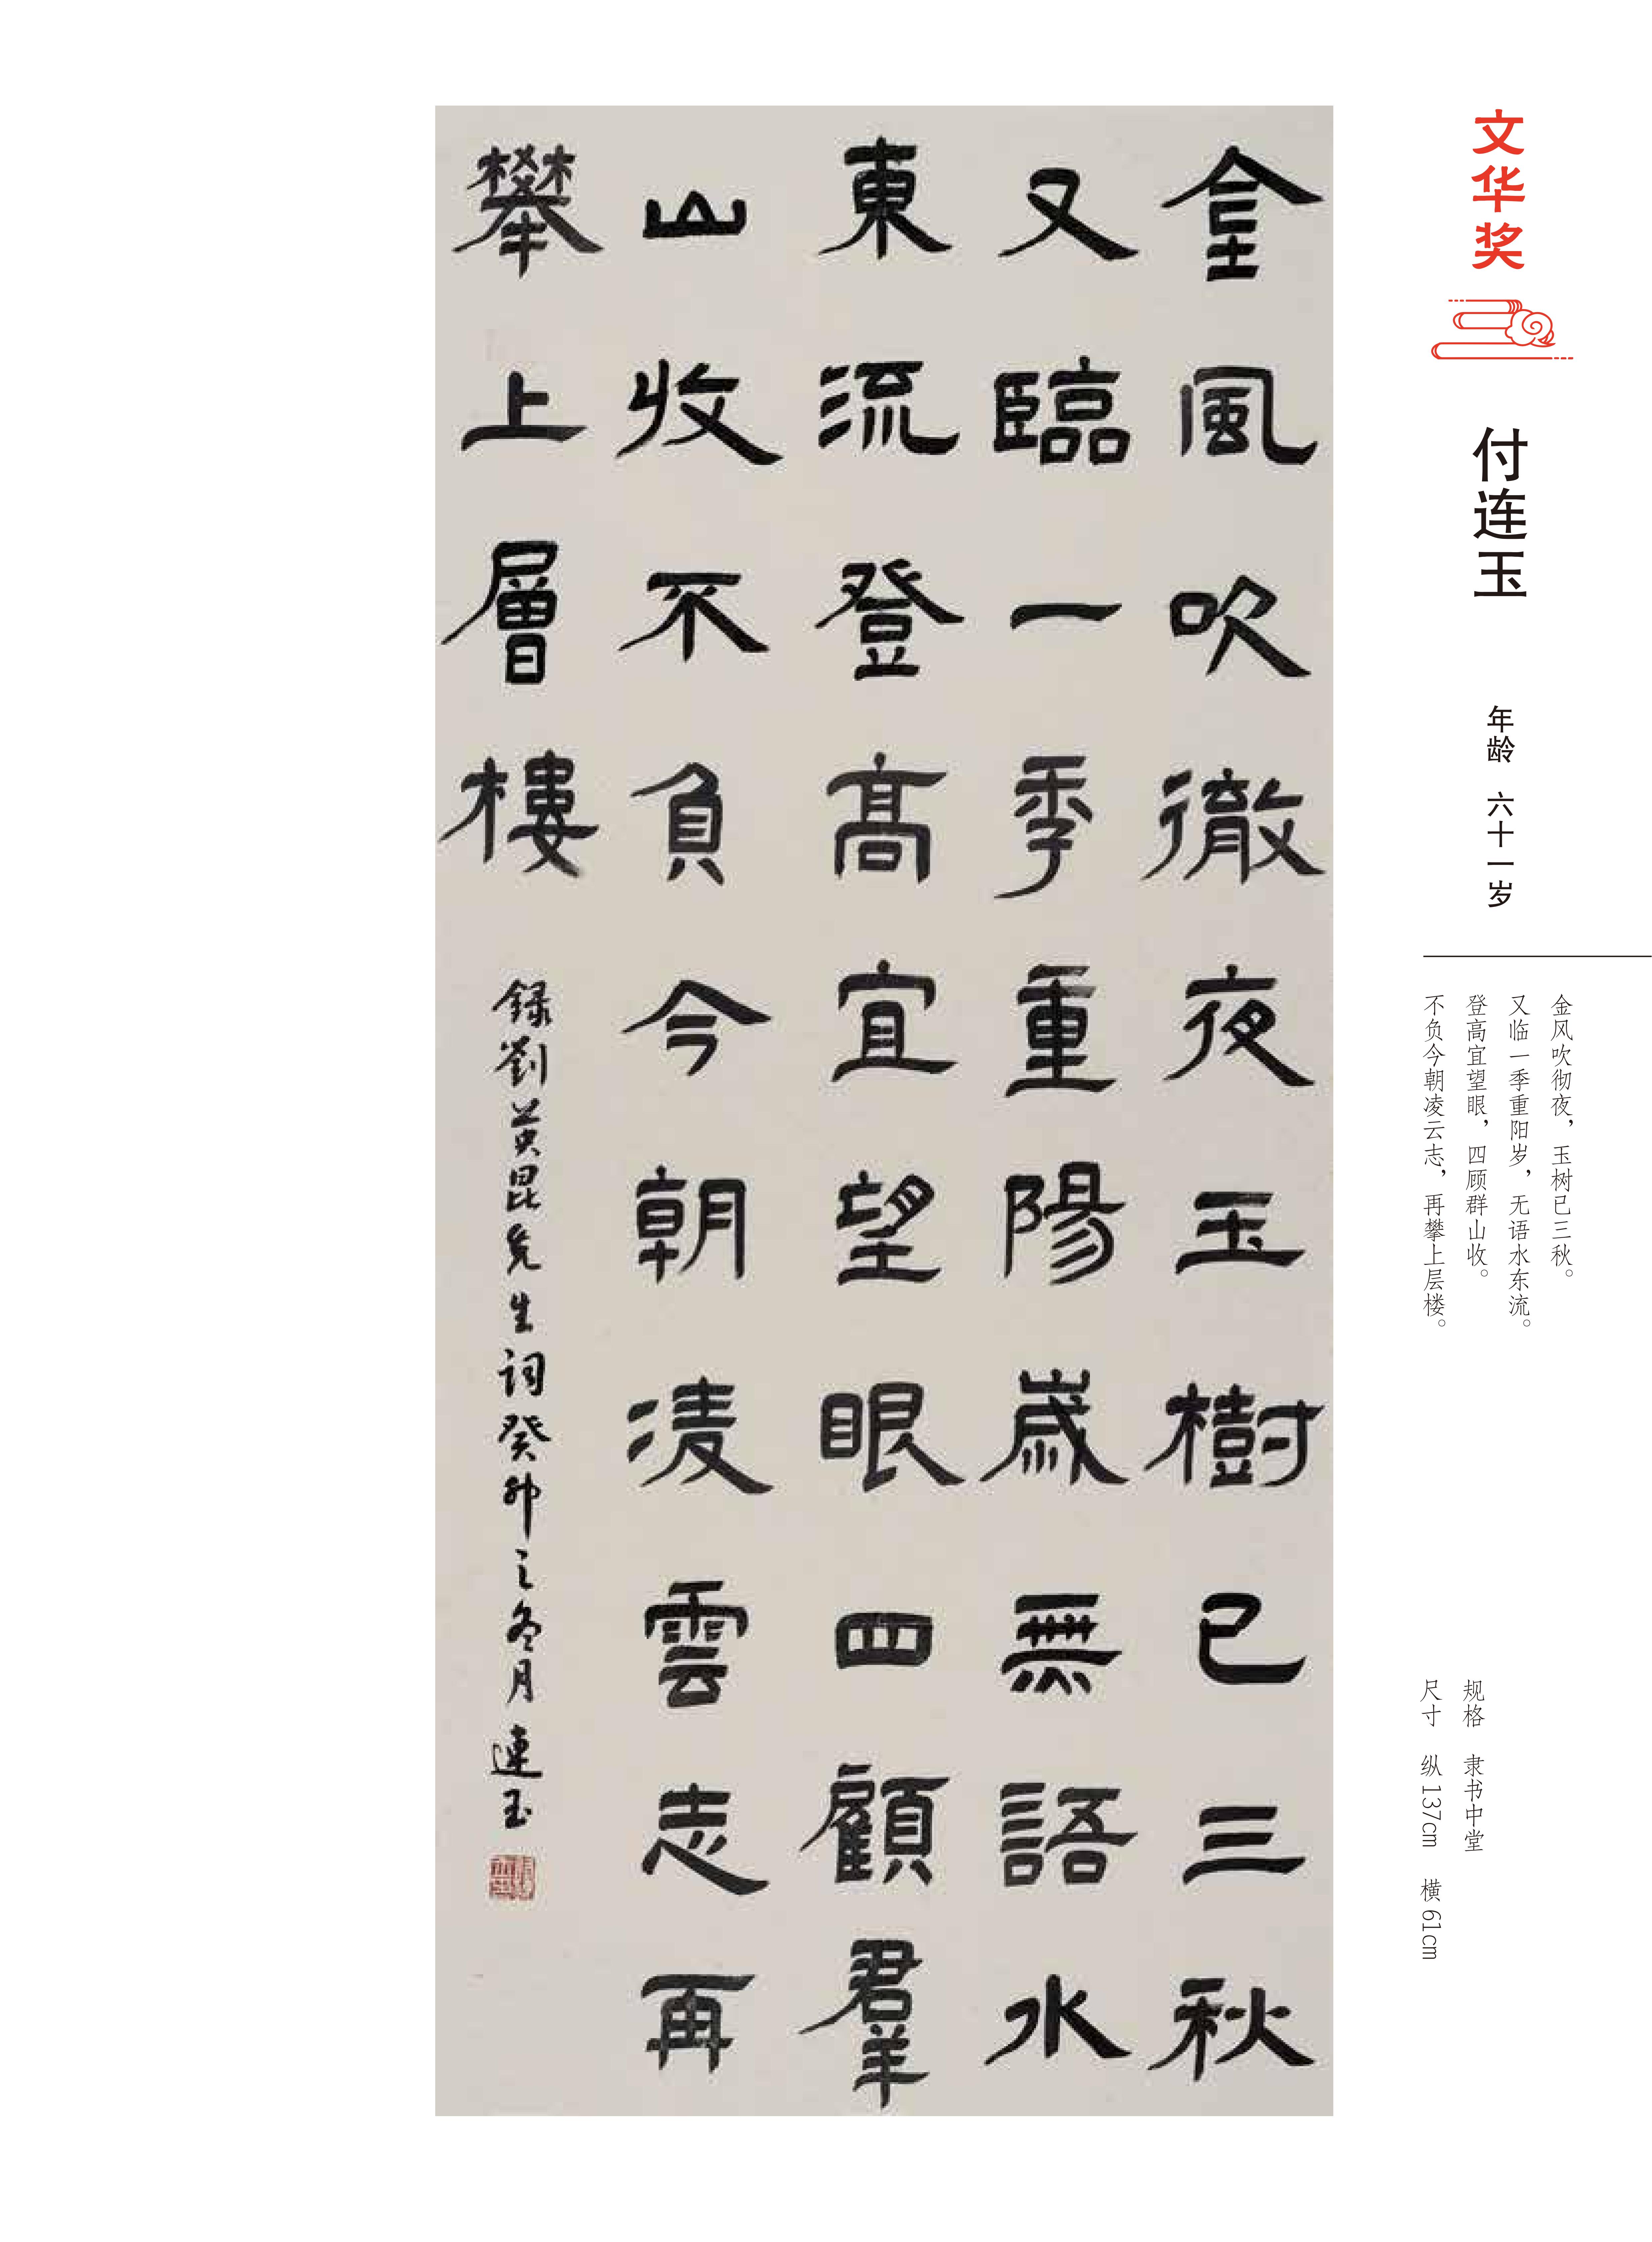 文华奖
付连玉
年龄 六十一岁
金风吹彻夜，玉树已三秋。
又临一季重阳岁，无语水东流。
登高宜望眼，四顾群山收。
不负今朝凌云志，再攀上层楼。
规格 隶书中堂
尺寸 纵137cm 横61cm
金風吹徹夜玉樹已三秋
又臨一季重陽歲無語水
東流登高宜望眼四顧羣
山收不負今朝凌雲志再
攀上層樓
録劉英昆先生词癸卯之冬月連玉